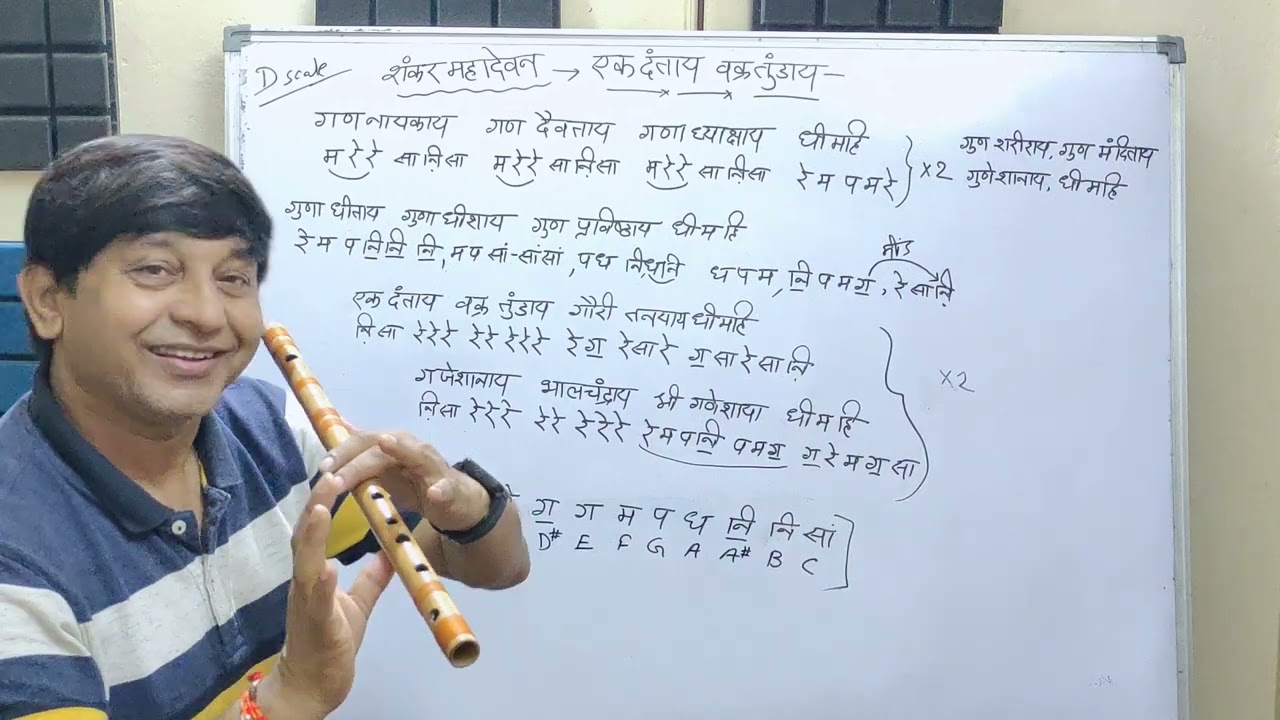 D scale शंकर महादेवन → एकदंताय वक्रतुंडाय –
गणनायकाय गण दैवताय गणाध्याक्षाय धीमहि
म रे रे सा नि़ सा म रे रे सा नि़ सा म रे रे सा नि़ सा रे म प म रे ×2
गुण शरीराय, गुण मंडिताय
गुणेशानाय, धीमहि
गुणाधीताय गुणाधीशाय गुण प्रविष्ठाय धीमहि
रे म प नि॒ नि॒ नि॒, म प सां-सांसां, प ध नि ध नि ध प म, नि॒ प म ग॒, रे सा नि़
मींड
एकदंताय वक्रतुंडाय गौरी तनयाय धीमहि
नि़ सा रे रे रे रे रे रे रे रे रे ग॒ रे सा रे ग॒ सा रे सा नि़
गजेशानाय भालचंद्राय श्री गणेशाया धीमहि
नि़ सा रे रे रे रे रे रे रे रे रे म प नि॒ प म ग॒ ग॒ रे म ग॒ सा
×2
ग॒ ग म प ध नि॒ नि सां
D# E F G A A# B C